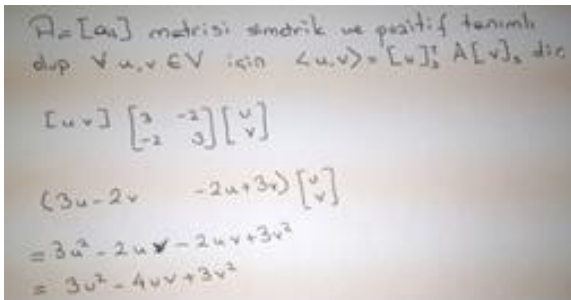 A = [aᵢⱼ] matrisi simetrik ve pozitif tanımlı
olup ∀ u,v ∈ V için <u,v> = [u]ₛᵀ A[v]ₛ dir
[u v] [3 -2; -2 3] [u; v]
(3u-2v -2u+3v) [u; v]
= 3u² - 2uv - 2uv + 3v²
= 3u² - 4uv + 3v²